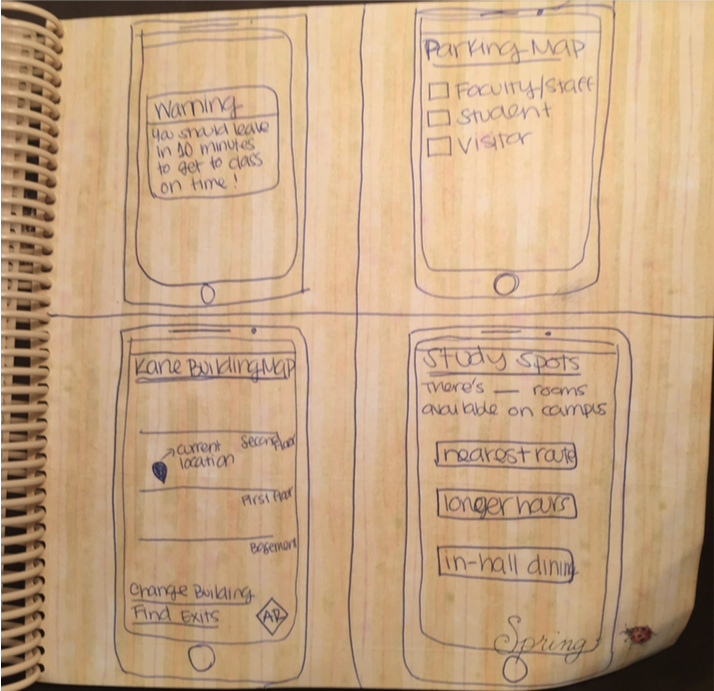 Warning
You should leave
in 10 minutes
to get to class
on time!
Parking Map
Faculty/Staff
Student
Visitor
Kane Building Map
Second Floor
current
location
First Floor
Basement
Change Building
Find Exits
AR
Study Spots
There's — rooms
available on campus
nearest
longer hours
in-hall dining
Spring